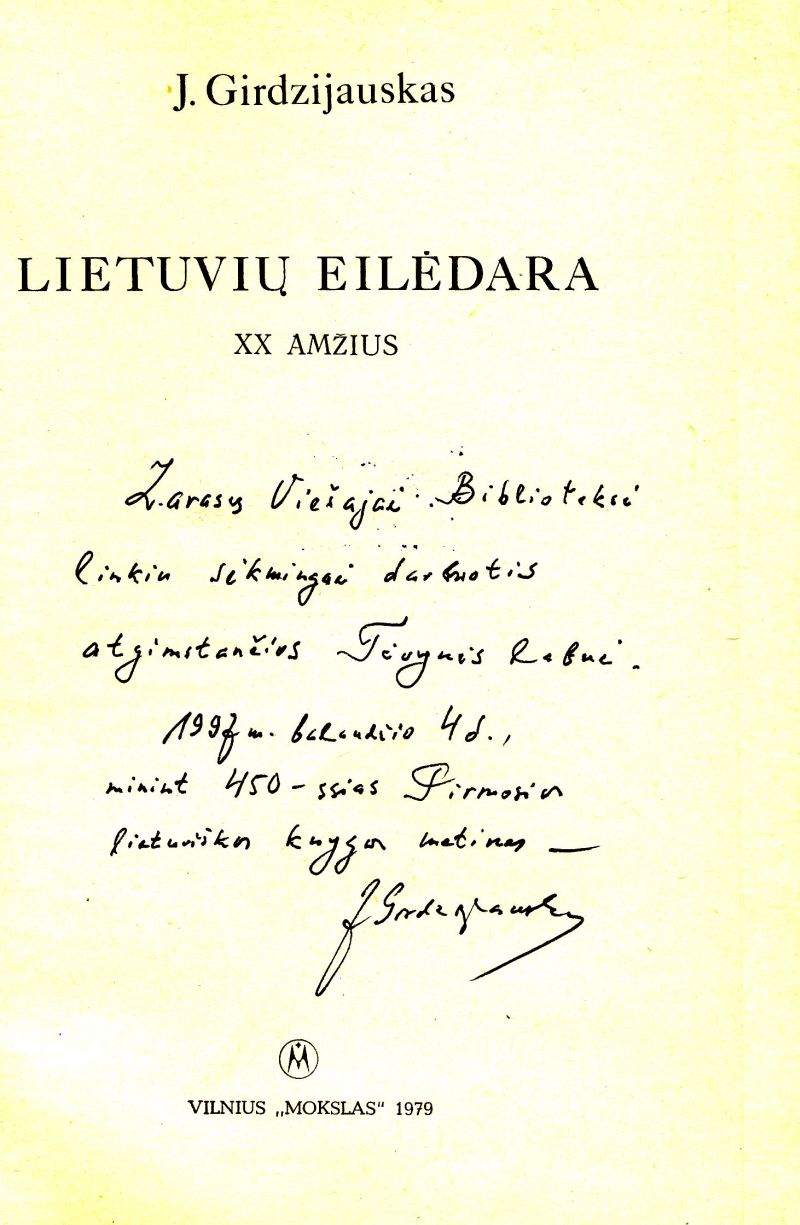 J. Girdzijauskas
LIETUVIŲ EILĖDARA
XX AMŽIUS
Zarasų Viešajai Bibliotekai
linkiu sėkmingai darbuotis
atgimstančios Tėvynės labui.
1997 m. balandžio 4 d.,
minint 450-ssias Pirmosios
lietuviškos knygos metines —
J Girdzijauskas
VILNIUS „MOKSLAS“ 1979